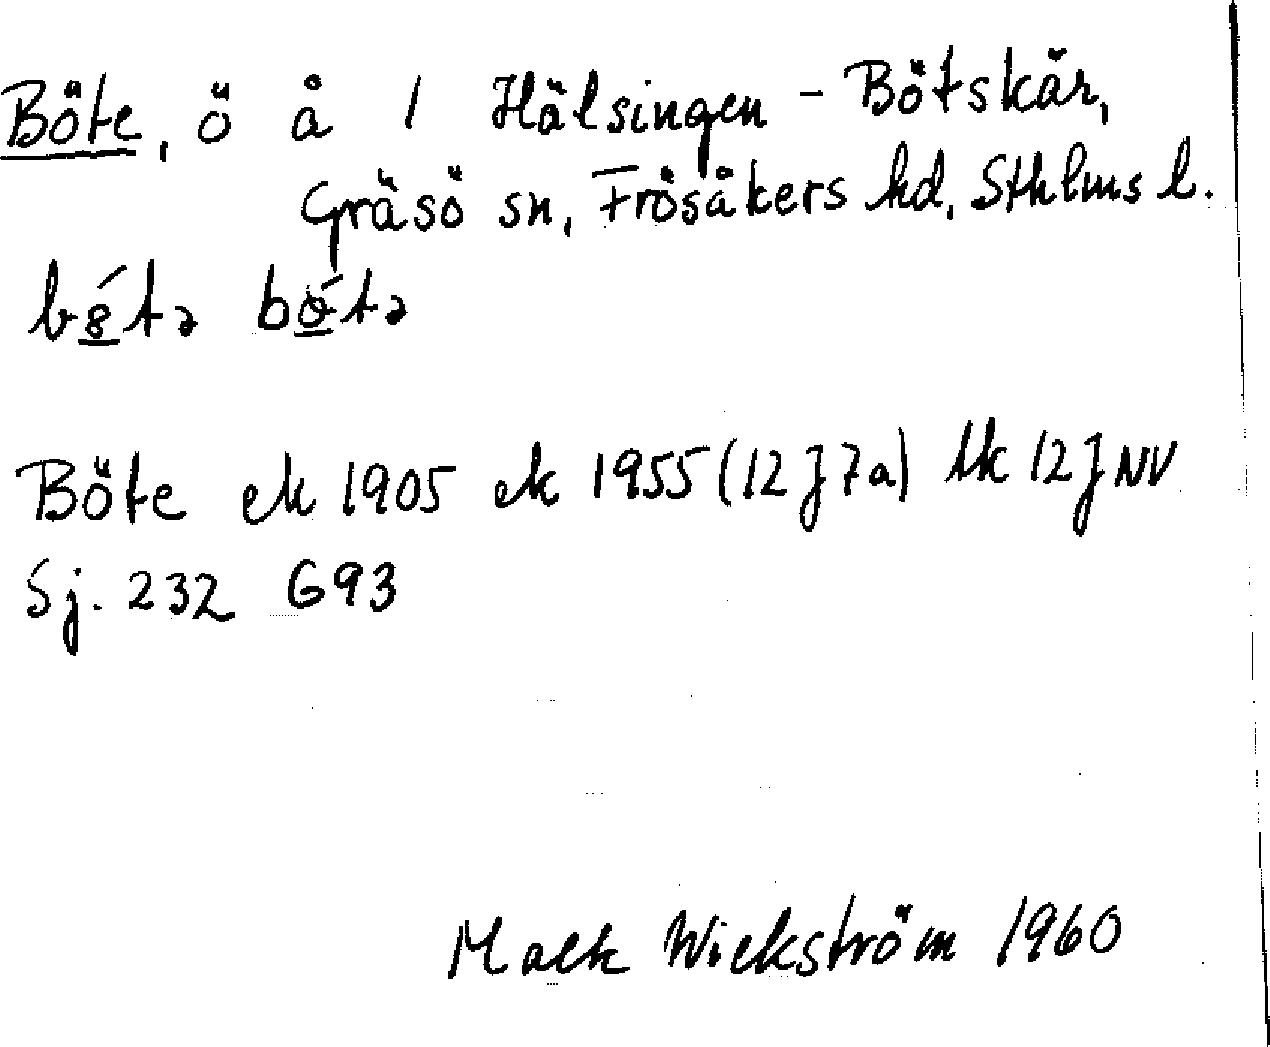 Böte, ö å 1 Hälsingen - Bötskär,
Gräsö sn, Frösåkers hd, Sthlms l.
Böte ek 1905 ek 1955 (12 J 7a) tk 12 J NV
Sj. 232 G93
Wickström 1960